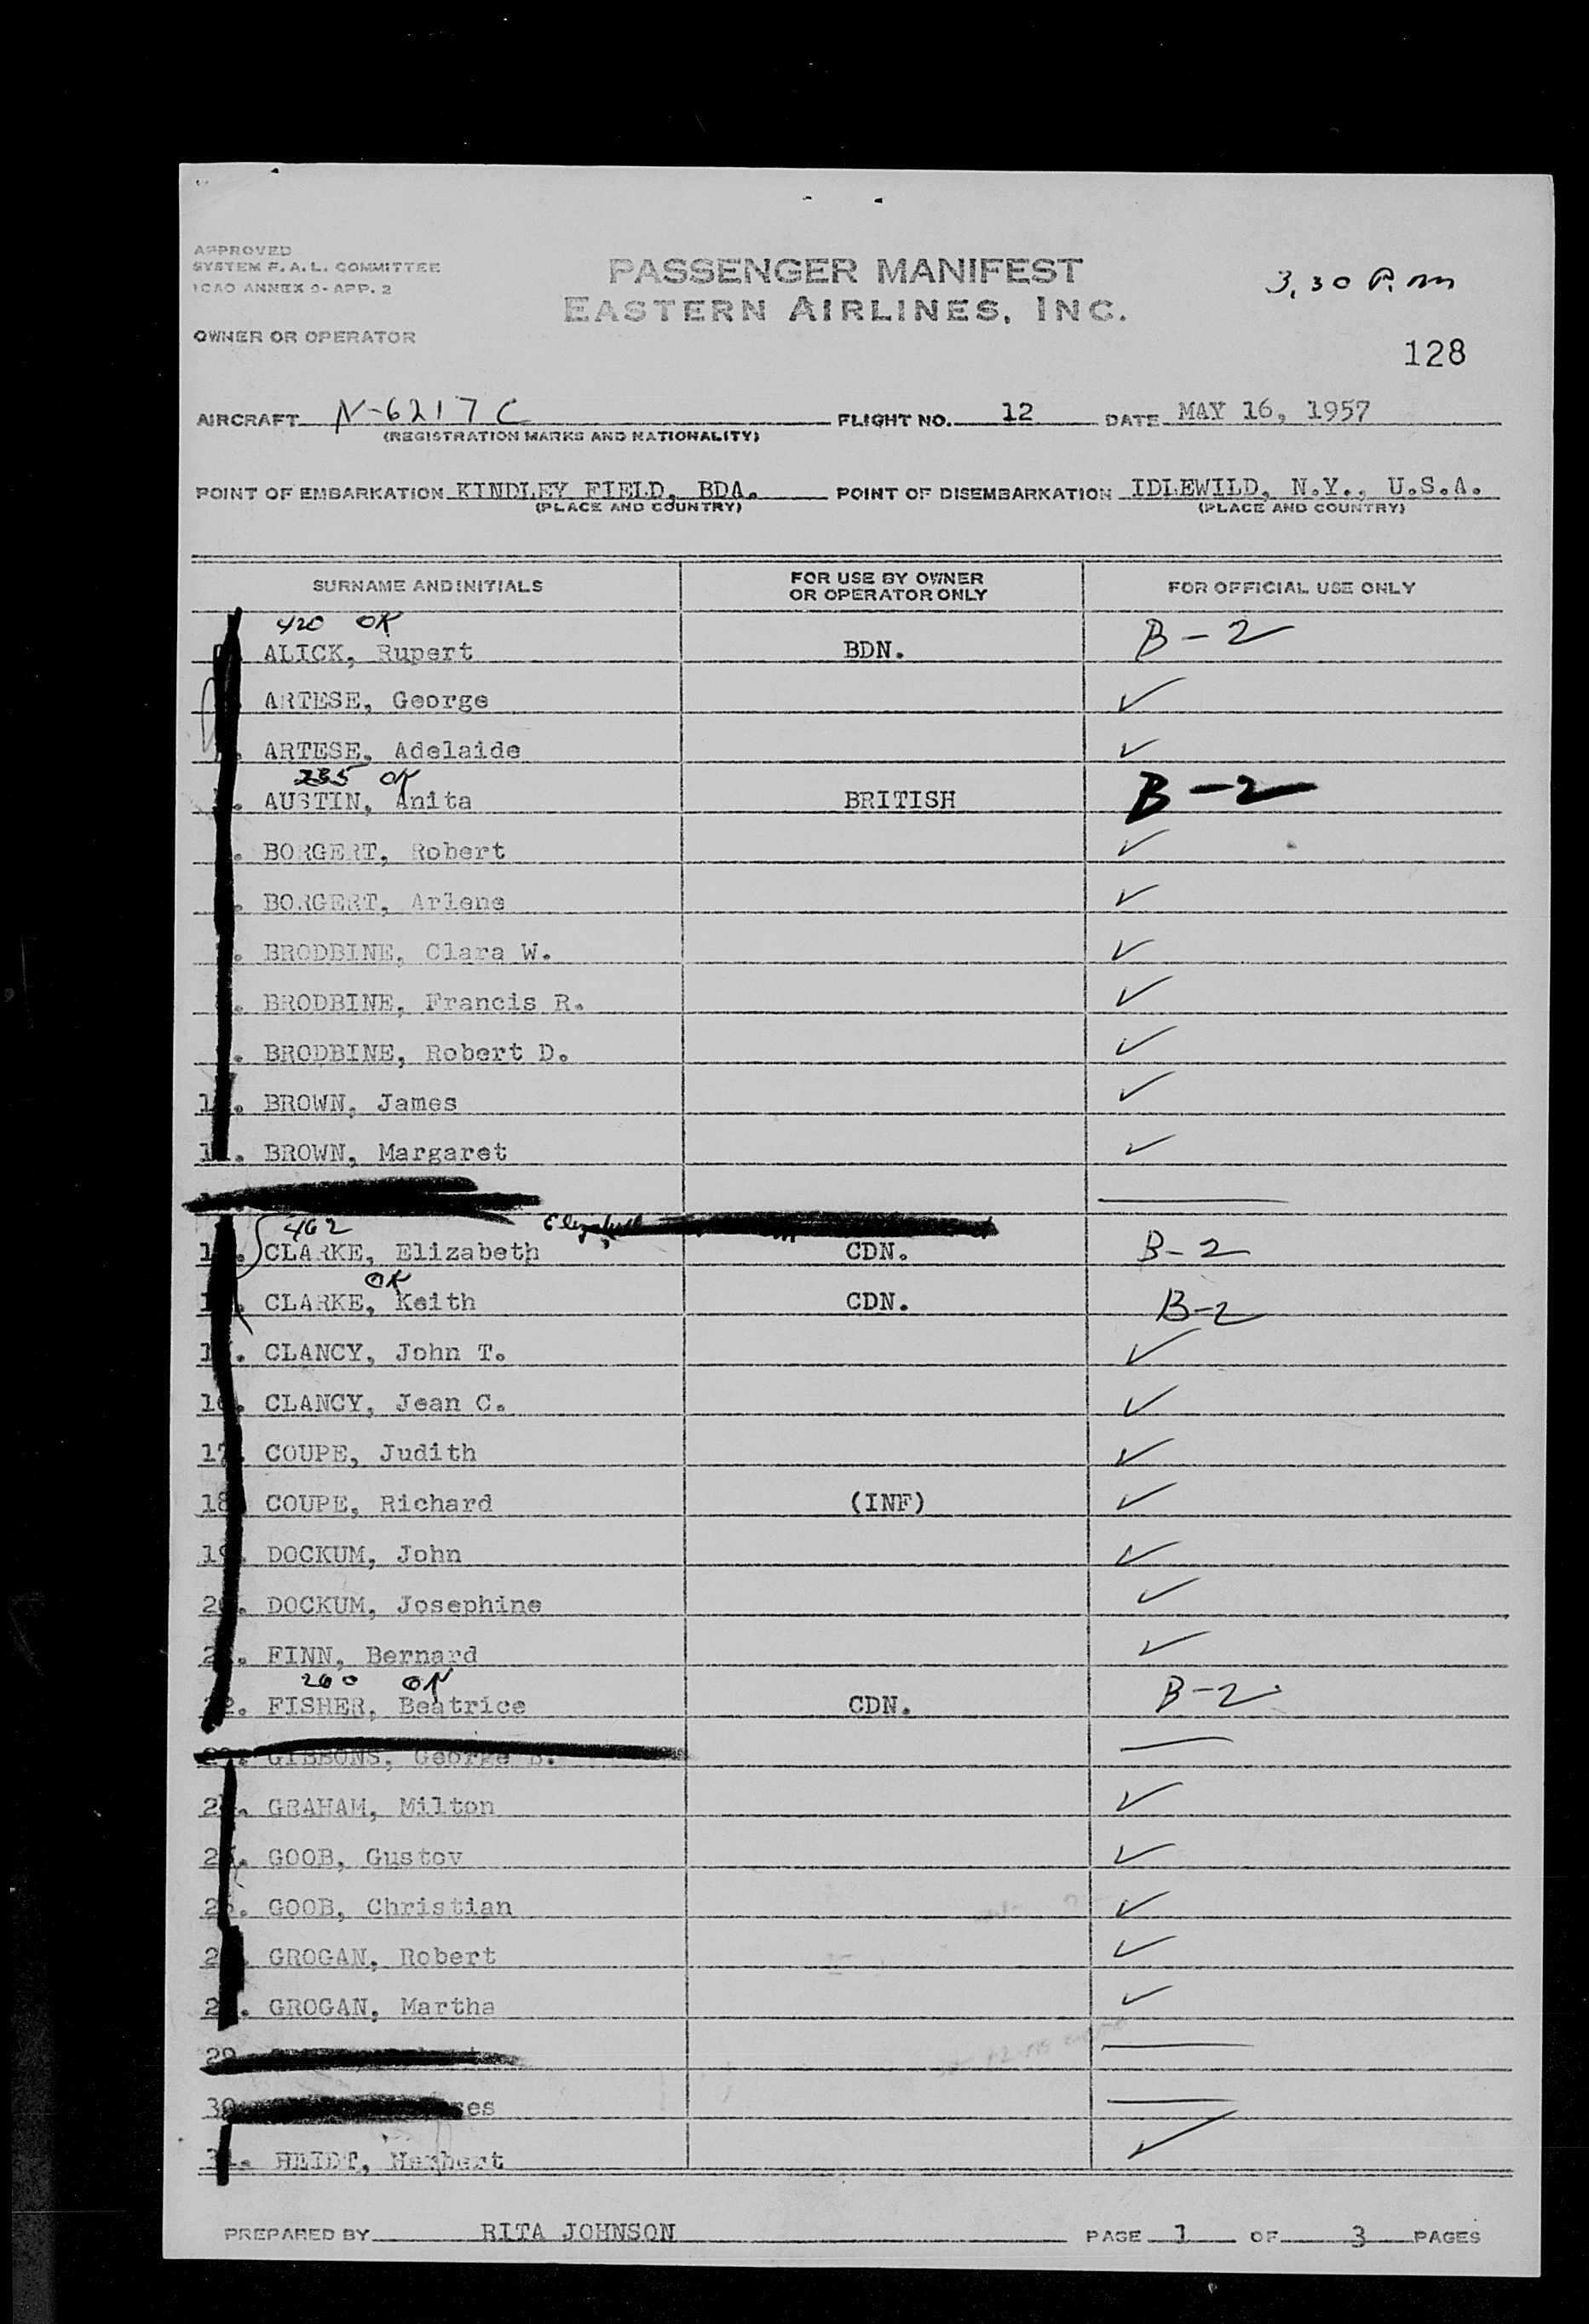 APPROVED
SYSTEM F.A.L. COMMITTEE
ICAO ANNEX 9-APP. 2
PASSENGER MANIFEST
EASTERN AIRLINES, INC.
3.30 P.m
OWNER OR OPERATOR
128
AIRCRAFT N-6217C FLIGHT NO. 12 DATE MAY 16, 1957
(REGISTRATION MARKS AND NATIONALITY)
POINT OF EMBARKATION KINDLEY FIELD, BDA. POINT OF DISEMBARKATION IDLEWILD, N.Y., U.S.A.
(PLACE AND COUNTRY) (PLACE AND COUNTRY)
SURNAME AND INITIALS FOR USE BY OWNER OR OPERATOR ONLY FOR OFFICIAL USE ONLY
420 OK
ALICK, Rupert BDN. B-2
ARTESE, George ✓
ARTESE, Adelaide ✓
235 OK
AUSTIN, Anita BRITISH B-2
BORGERT, Robert ✓
BORGERT, Arlene ✓
BRODBINE, Clara W. ✓
BRODBINE, Francis R. ✓
BRODBINE, Robert D. ✓
BROWN, James ✓
BROWN, Margaret ✓
462 Elizabeth
CLARKE, Elizabeth CDN. B-2
OK
CLARKE, Keith CDN. B-2
CLANCY, John T. ✓
16. CLANCY, Jean C. ✓
17. COUPE, Judith ✓
18 COUPE, Richard (INF) ✓
19. DOCKUM, John ✓
DOCKUM, Josephine ✓
FINN, Bernard ✓
260 OK
22. FISHER, Beatrice CDN. B-2
GIBBONS, George B.
GRAHAM, Milton ✓
GOOB, Gustov ✓
GOOB, Christian ✓
GROGAN, Robert ✓
GROGAN, Martha ✓
29
30
HEIDT, Herbert ✓
PREPARED BY RITA JOHNSON PAGE 1 OF 3 PAGES